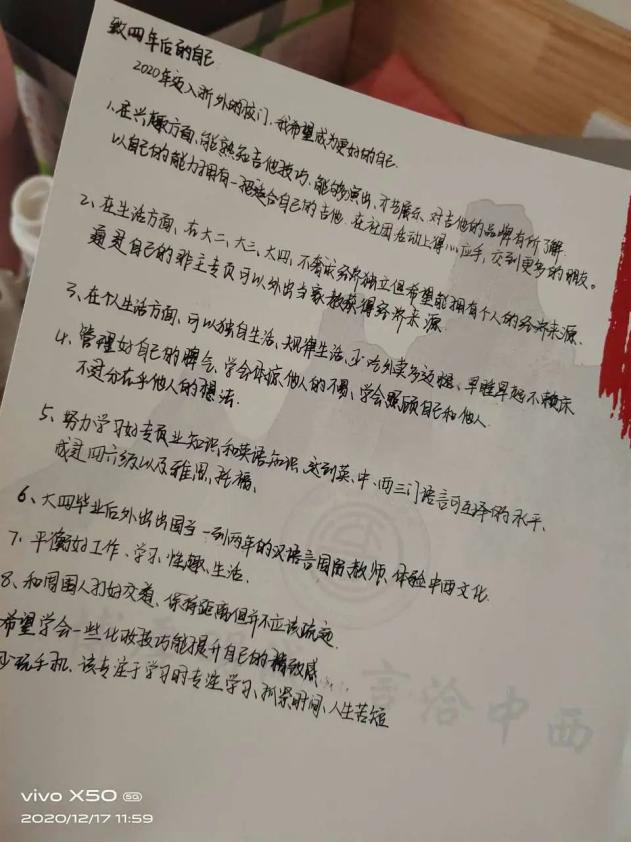 致四年后的自己
2020年迈入浙外的校门,我希望成为更好的自己.
1.在兴趣方面,能熟练吉他技巧,能够演出,才艺展示,对吉他的品牌有所了解.
以自己的能力拥有一把适合自己的吉他.在社团活动上得心应手,交到更多的朋友。
2、在生活方面、在大二、大三、大四,不奢谈经济独立但希望能拥有个人的经济来源.
通过自己的非主专页可以外出当家教获得经济来源.
3、在个人生活方面、可以独自生活、规律生活、少吃外卖多运动、早睡早起不赖床
4、管理好自己的脾气、学会体谅他人的不易、学会照顾自己和他人.
不过分在乎他人的想法.
5、努力学习好专页业知识和英语知识、达到英、中、西三门语言可互译的水平、
成过四六级以及雅思、托福、
6、大四毕业后外出出国当一到两年的汉语言国际教师、体验中西文化.
7、平衡好工作、学习、性趣、生活.
8、和周围人打好交道、保持距离但并不应该疏远.
希望学会一些化妆技巧能提升自己的精致感....
少玩手机、该专注于学习时专注学习、抓紧时间、人生苦短
言洽中西
vivo X50 5G
2020/12/17 11:59